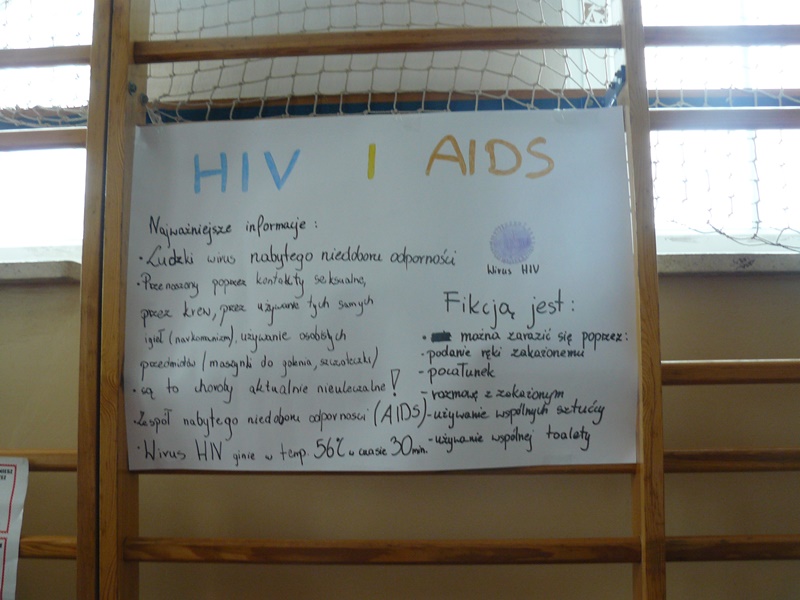 HIV I AIDS
Najważniejsze informacje:
• Ludzki wirus nabytego niedoboru odporności
• Przenoszony poprzez kontakty seksualne,
przez krew, przez używanie tych samych
igieł (narkomanizm), używanie osobistych
przedmiotów (maszynki do golenia, szczoteczki)
• są to choroby aktualnie nieuleczalne!
• Zespół nabytego niedoboru odporności (AIDS)
• Wirus HIV ginie w temp. 56°C w czasie 30 min.
Wirus HIV
Fikcją jest:
• można zarazić się poprzez:
- podanie ręki zakażonemu
- pocałunek
- rozmowę z zakażonym
- używanie wspólnych sztućcy
- używanie wspólnej toalety